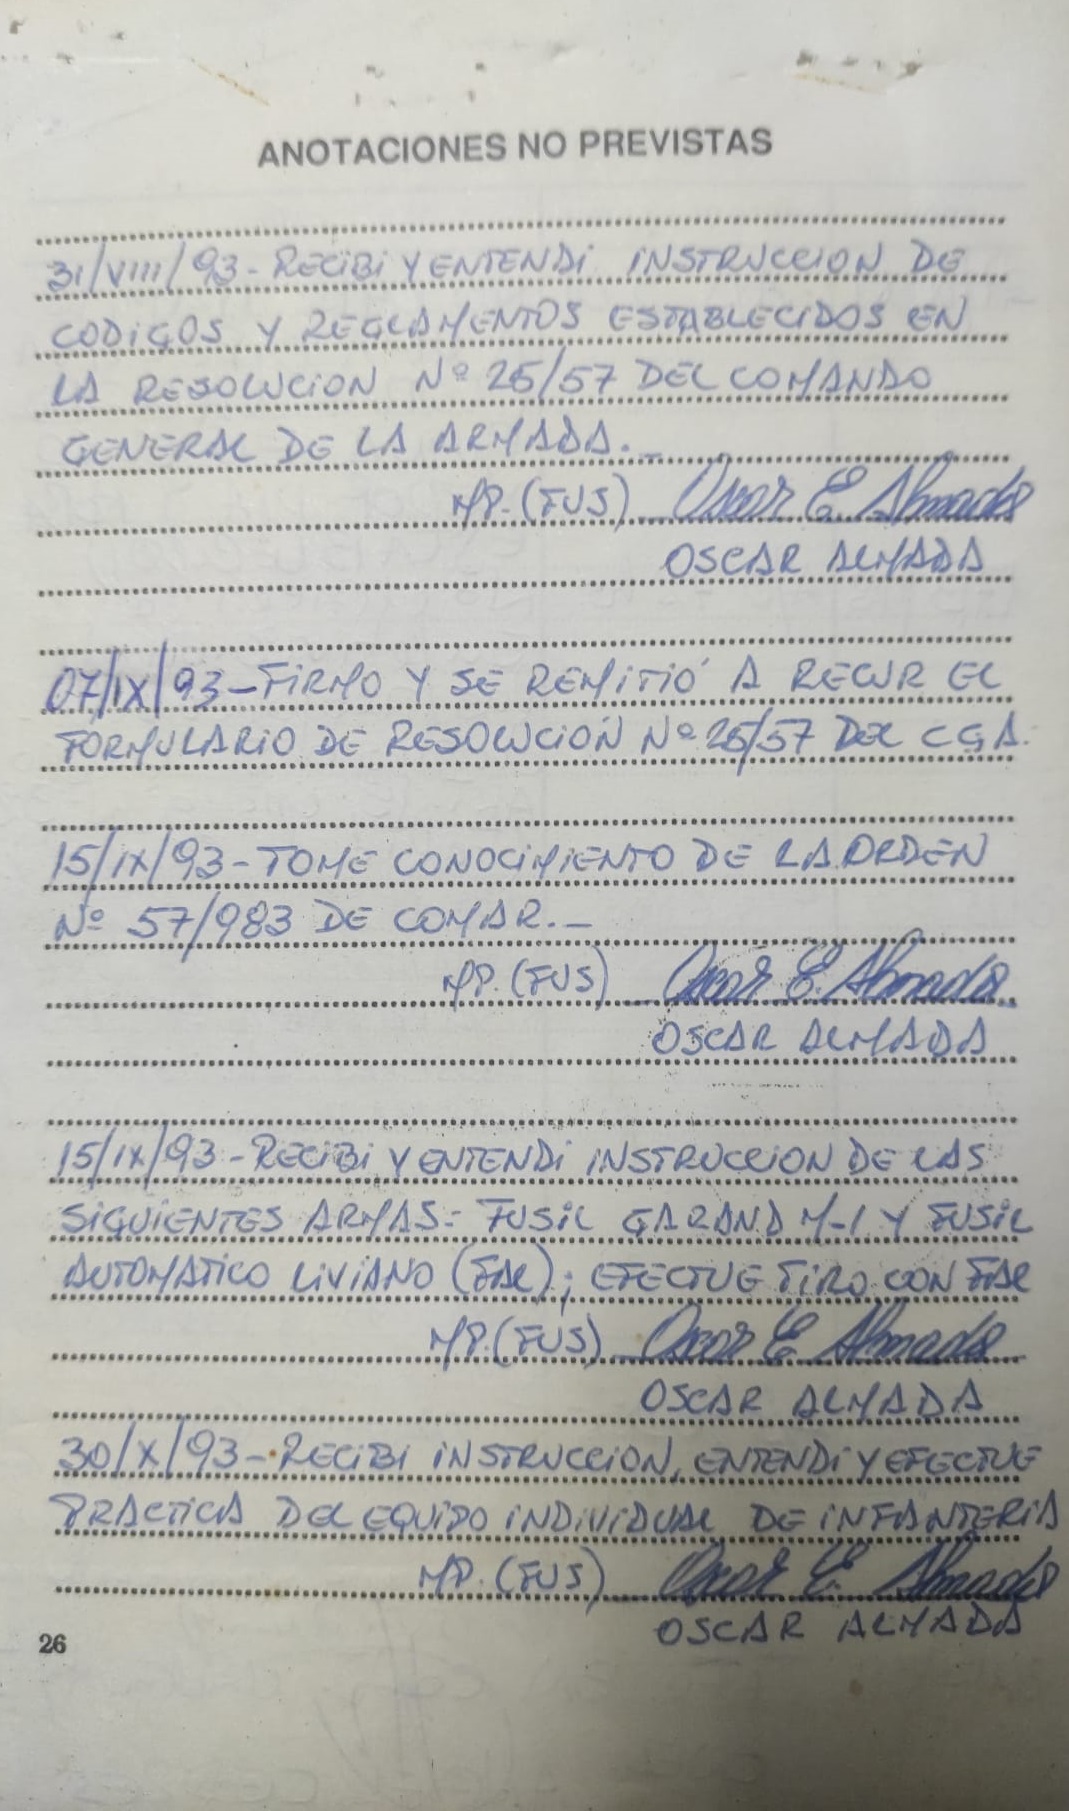 ANOTACIONES NO PREVISTAS
31/VIII/93- RECIBI Y ENTENDI INSTRUCCION DE
CODIGOS Y REGLAMENTOS ESTABLECIDOS EN
LA RESOLUCION Nº 26/57 DEL COMANDO
GENERAL DE LA ARMADA._
MP. (FUS) Oscar E. Almada
OSCAR ALMADA
07/IX/93-FIRMO Y SE REMITIÓ A RECUR EL
FORMULARIO DE RESOLUCIÓN Nº 26/57 DEL C G A.
15/IX/93-TOME CONOCIMIENTO DE LA ORDEN
Nº 57/983 DE COMAR._
MP. (FUS) Oscar E. Almada
OSCAR ALMADA
15/IX/93-RECIBI Y ENTENDI INSTRUCCION DE LAS
SIGUIENTES ARMAS= FUSIL GARAND M-1 Y FUSIL
AUTOMATICO LIVIANO (FAL); EFECTUE TIRO CON FAL
MP. (FUS) Oscar E Almada
OSCAR ALMADA
30/X/93-RECIBI INSTRUCCION, ENTENDI Y EFECTUE
PRACTICA DEL EQUIPO INDIVIDUAL DE INFANTERIA
MP. (FUS) Oscar E. Almada
OSCAR ALMADA
26